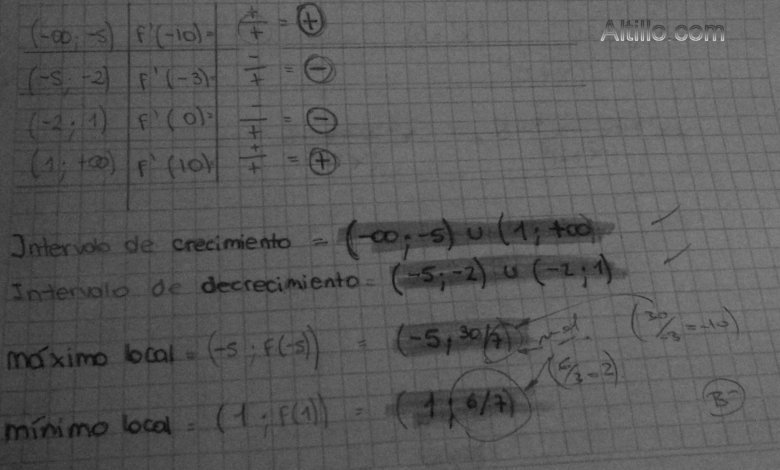 Altillo.com
(-∞; -5) | f'(-10)= +/+ = ⊕
(-5; -2) | f'(-3)= -/+ = ⊖
(-2; 1) | f'(0)= -/+ = ⊖
(1; +∞) | f'(10)= +/+ = ⊕
Intervalo de crecimiento = (-∞; -5) ∪ (1; +∞) ✓
Intervalo de decrecimiento = (-5; -2) ∪ (-2; 1) ✓
máximo local = (-5; f(-5)) = (-5; 30/7) (30/-3 = -10)
(6/3 = 2)
mínimo local = (1; f(1)) = (1; 6/7) B-